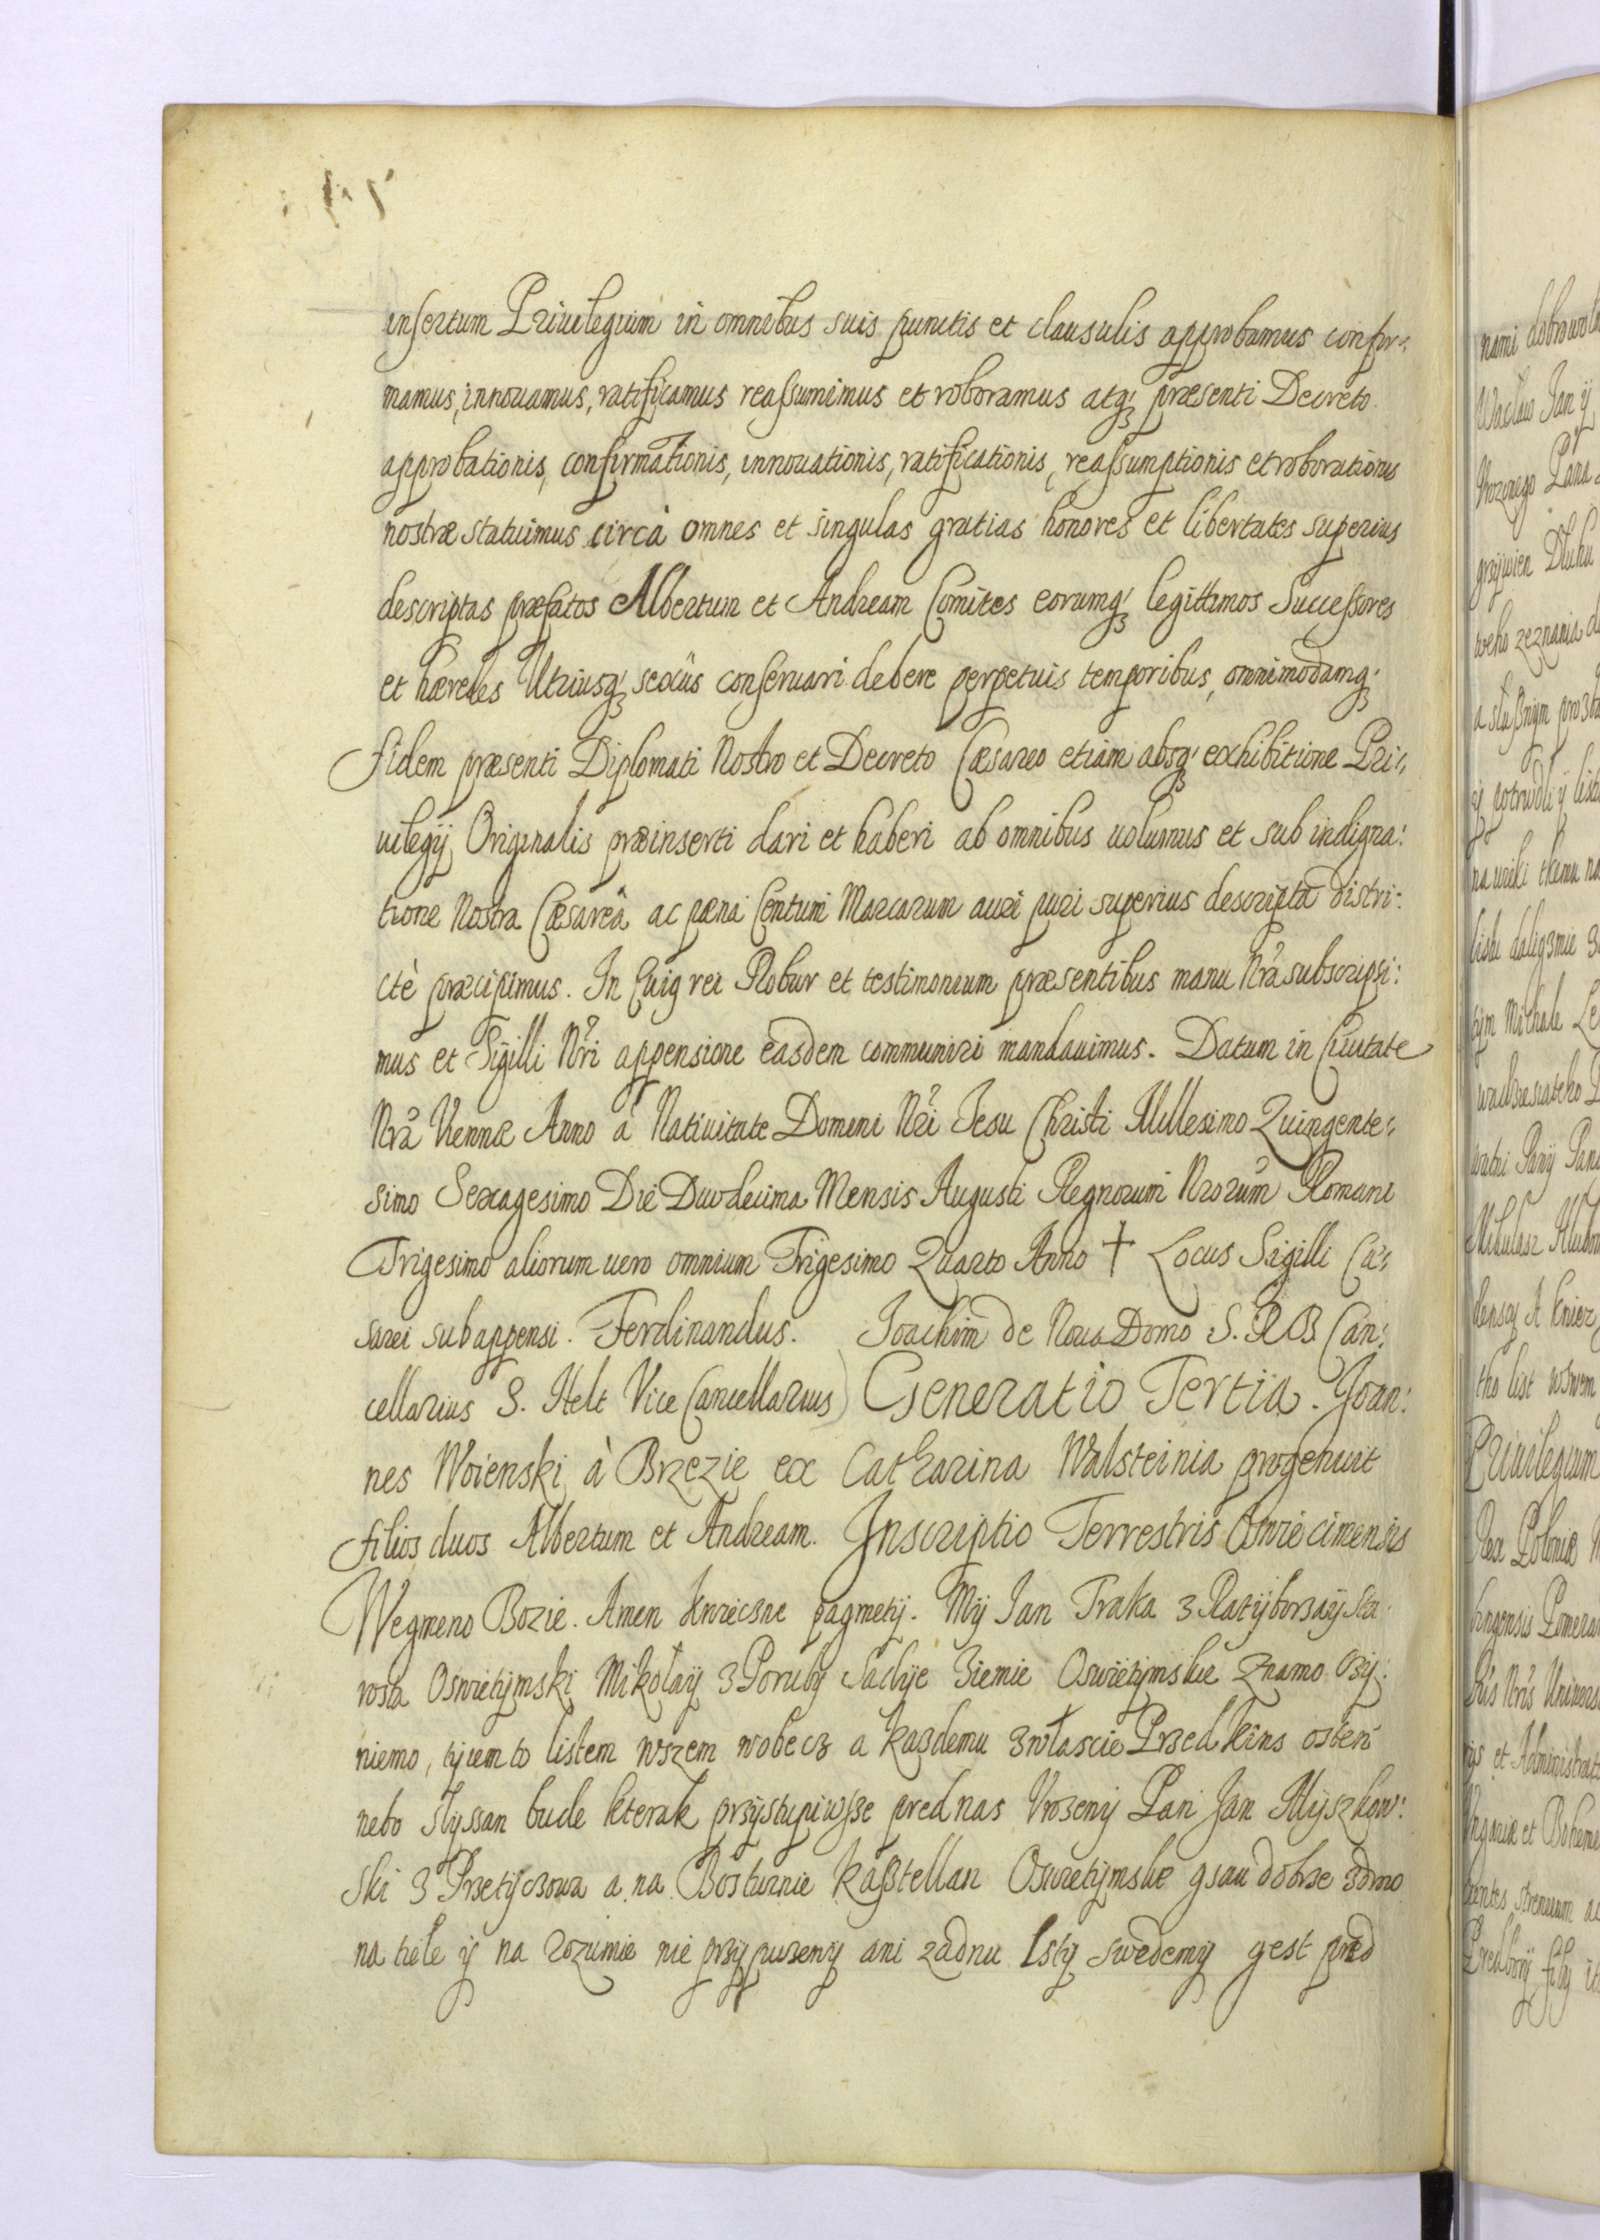 insertum Priuilegium in omnibus suis punctis et clausulis approbamus confir-
mamus, innouamus, ratificamus reassumimus et roboramus atq; præsenti Decreto
approbationis, confirmationis, innouationis, ratificationis, reassumptionis et roborationis
nostræ statuimus circà omnes et singulas gratias honores et libertates superius
descriptas præfatos Albertum et Andream Comites eorumq; legittimos Successores
et hæredes Utriusq; sexûs conseruari debere perpetuis temporibus, omnimodamq;
fidem præsenti Diplomati Nostro et Decreto Cæsareo etiam absq; exhibitione Pri-
uilegij Originalis præinserti dari et haberi ab omnibus uolumus et sub indigna:
tione Nostra Cæsareâ ac pæna Centum Marcarum auri puri superius descripta distri:
ctè præcipimus. In Cuig rei Robur et testimonium præsentibus manu Nrâ subscripsi:
mus et Sigilli Nri appensione easdem communiri mandauimus. Datum in Ciuitate
Nrâ Viennæ Anno à Natiuitate Domini Nri Jesu Christi Millesimo Quingente-
simo Sexagesimo Die Duodecima Mensis Augusti Regnorum Nrorum Romani
Trigesimo aliorum uero omnium Trigesimo Quarto Anno + Locus Sigilli Cæ-
sarei subappensi. Ferdinandus. Joachim de Noua Domo S. R B Can:
cellarius S. Helt Vice Cancellarius) Generatio Tertia. Joan:
nes Woienski à Brzezie ex Catharina Walsteinia progenuit
filios duos Albertum et Andream. Inscriptio Terrestris Oswiecimensis
Wegmeno Bozie. Amen Knieczne pagmetij. Mij Jan Traka z Ratijborzaij Sta-
rosta Oswietijmski Mikołaij z Poruby Sudije Ziemie Oswietijmskie Znamo czij:
niemo, tijem to listem wszem wobecz a kazdemu zwłascie Przed kims osten
nebo slyssan bude kterak przijstupiwsze pred nas Vrozenij Pan Jan Mijszkow:
ski z Przetijczowa a na Bosturnie kasztellan Oswietijmske gsau dobrze zdrwo
na tiele ij na rozumie nie przijpuzenij ani zadnu lstij swedemij gest pred